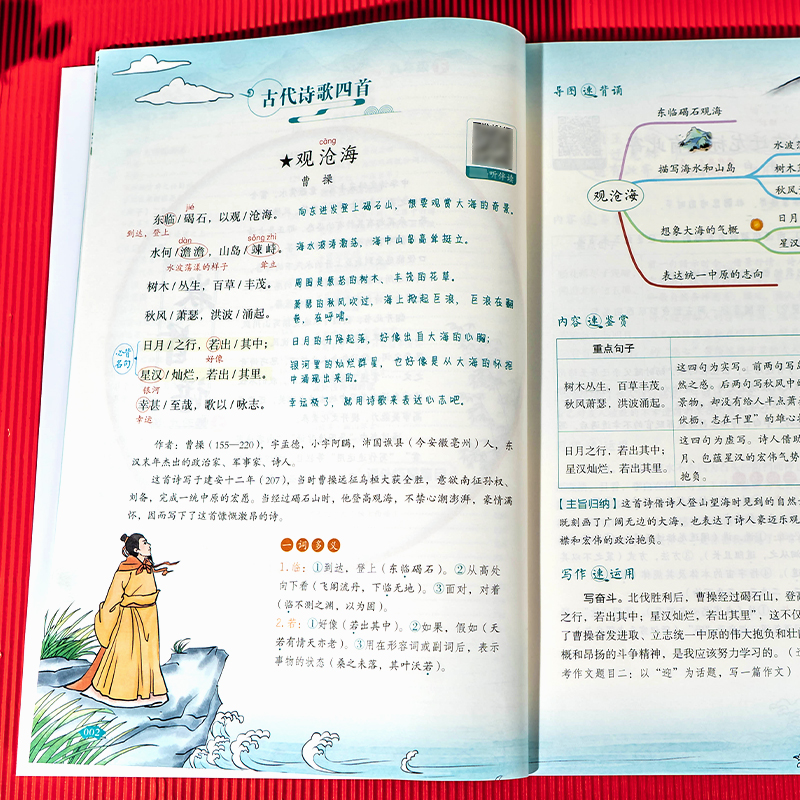 古代诗歌四首
cāng
★观沧海
曹 操
听伴读
jié
东临/碣石，以观/沧海。 向东进发登上碣石山，想要观赏大海的奇景。
到达，登上
dàn sǒng zhì
水何/澹澹，山岛/竦峙。 海水波涛激荡，海中山岛高耸挺立。
水波荡漾的样子 耸立
树木/丛生，百草/丰茂。 周围是葱茏的树木，丰茂的花草。
秋风/萧瑟，洪波/涌起。 萧瑟的秋风吹过，海上掀起巨浪，巨浪在翻
卷，在呼啸。
必背名句
日月/之行，若出/其中； 日月的升降起落，好像出自大海的心胸；
好像
星汉/灿烂，若出/其里。 银河里的灿烂群星，也好像是从大海的怀抱
中涌现出来的。
银河
幸甚/至哉，歌以/咏志。 幸运极了，就用诗歌来表达心志吧。
幸运
作者：曹操（155—220），字孟德，小字阿瞒，沛国谯县（今安徽亳州）人，东
汉末年杰出的政治家、军事家、诗人。
这首诗写于建安十二年（207），当时曹操远征乌桓大获全胜，意欲南征孙权、
刘备，完成一统中原的宏愿。当经过碣石山时，他登高观海，不禁心潮澎湃，豪情满
怀，因而写下了这首慷慨激昂的诗。
一词多义
1.临：①到达，登上（东临碣石）。②从高处
向下看（飞阁流丹，下临无地）。③面对，对着
（临不测之渊，以为固）。
2.若：①好像（若出其中）。②如果，假如（天
若有情天亦老）。③用在形容词或副词后，表示
事物的状态（桑之未落，其叶沃若）。
002
导图速背诵
观沧海
东临碣石观海
描写海水和山岛
水波荡
树木
秋风
想象大海的气概
日月
星汉
表达统一中原的志向
内容速鉴赏
重点句子
树木丛生，百草丰茂。
秋风萧瑟，洪波涌起。
这四句为实写。前两句写岛
然之感。后两句写秋风中
景物，却没有给人半点萧
伏枥，志在千里”的雄心
日月之行，若出其中；
星汉灿烂，若出其里。
这四句为虚写。诗人借助
月、包蕴星汉的宏伟气势
抱负。
【主旨归纳】这首诗借诗人登山望海时见到的自然
既刻画了广阔无边的大海，也表达了诗人豪迈乐观
襟和宏伟的政治抱负。
写作速运用
写奋斗。北伐胜利后，曹操经过碣石山，登高
之行，若出其中；星汉灿烂，若出其里”，这不仅
了曹操奋发进取、立志统一中原的伟大抱负和壮
概和昂扬的斗争精神，是我应该努力学习的。
考作文题目二：以“迎”为话题，写一篇作文）